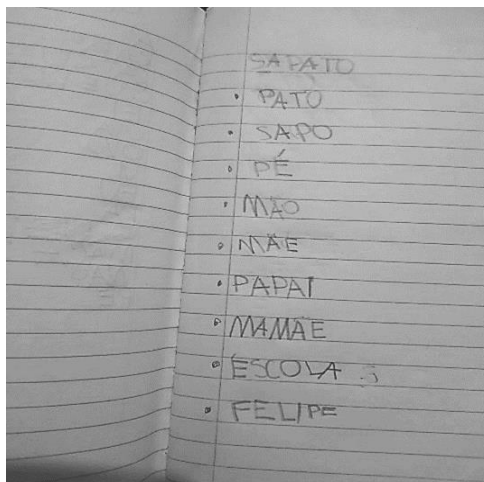 SAPATO
• PATO
• SAPO
• PÉ
• MÃO
• MÃE
• PAPAI
• MAMÃE
• ESCOLA
• FELIPE